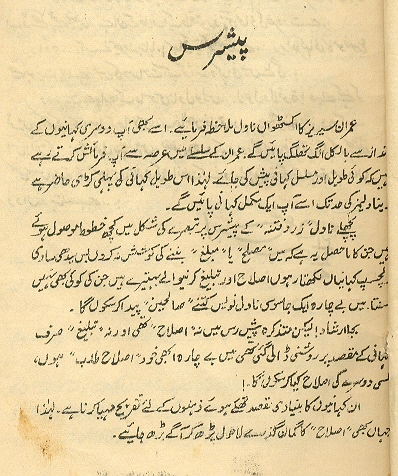 پیشرس
عمران سیریز کا اکسٹھواں ناول ملاحظہ فرمایئے۔ اسے بھی آپ دوسری کہانیوں کے
انداز سے بالکل الگ تھلگ پائیں گے۔ عمران کے سلسلے میں عرصہ سے آپ فرمائش کرتے رہے
ہیں کہ کوئی طویل اور مسلسل کہانی پیش کی جائے۔ لہٰذا اس طویل کہانی کی پہلی کڑی حاضر ہے
۔ پناہ لینے کی حد تک اسے آپ ایک مکمل کہانی پائیں گے۔
پچھلے ناول "زرد فتنہ" کے پیشرس پر تبصرے کی شکل میں کچھ خطوط موصول ہوئے
ہیں جن کا ماحصل یہ ہے کہ میں "مصلح" یا "مبلغ" بننے کی کوشش نہ کروں بس سیدھی سادی
دلچسپ کہانیاں لکھتا رہوں اصلاح اور تبلیغ کرنیوالے بہتیرے ہیں جن کی کوئی بھی نہیں
سنتا میں بے چارہ ایک جاسوسی ناول نویس کتنے "صالحین" پیدا کر سکوں گا۔
بجا ارشاد! لیکن متذکرہ پیش رس میں نہ "اصلاح" تھی اور نہ "تبلیغ" صرف
کہانی کے مقصد پر روشنی ڈالی گئی تھی میں بے چارہ ابھی خود "اصلاح طلب" ہوں،
کسی دوسرے کی اصلاح کیا کر سکوں گا۔!
ان کہانیوں کا بنیادی مقصد تھکے ہوئے ذہنوں کے لئے تفریح مہیا کرنا ہے۔ لہٰذا
جہاں کبھی "اصلاح" کا گمان گذرے لاحول پڑھ کر آگے بڑھ جایئے۔